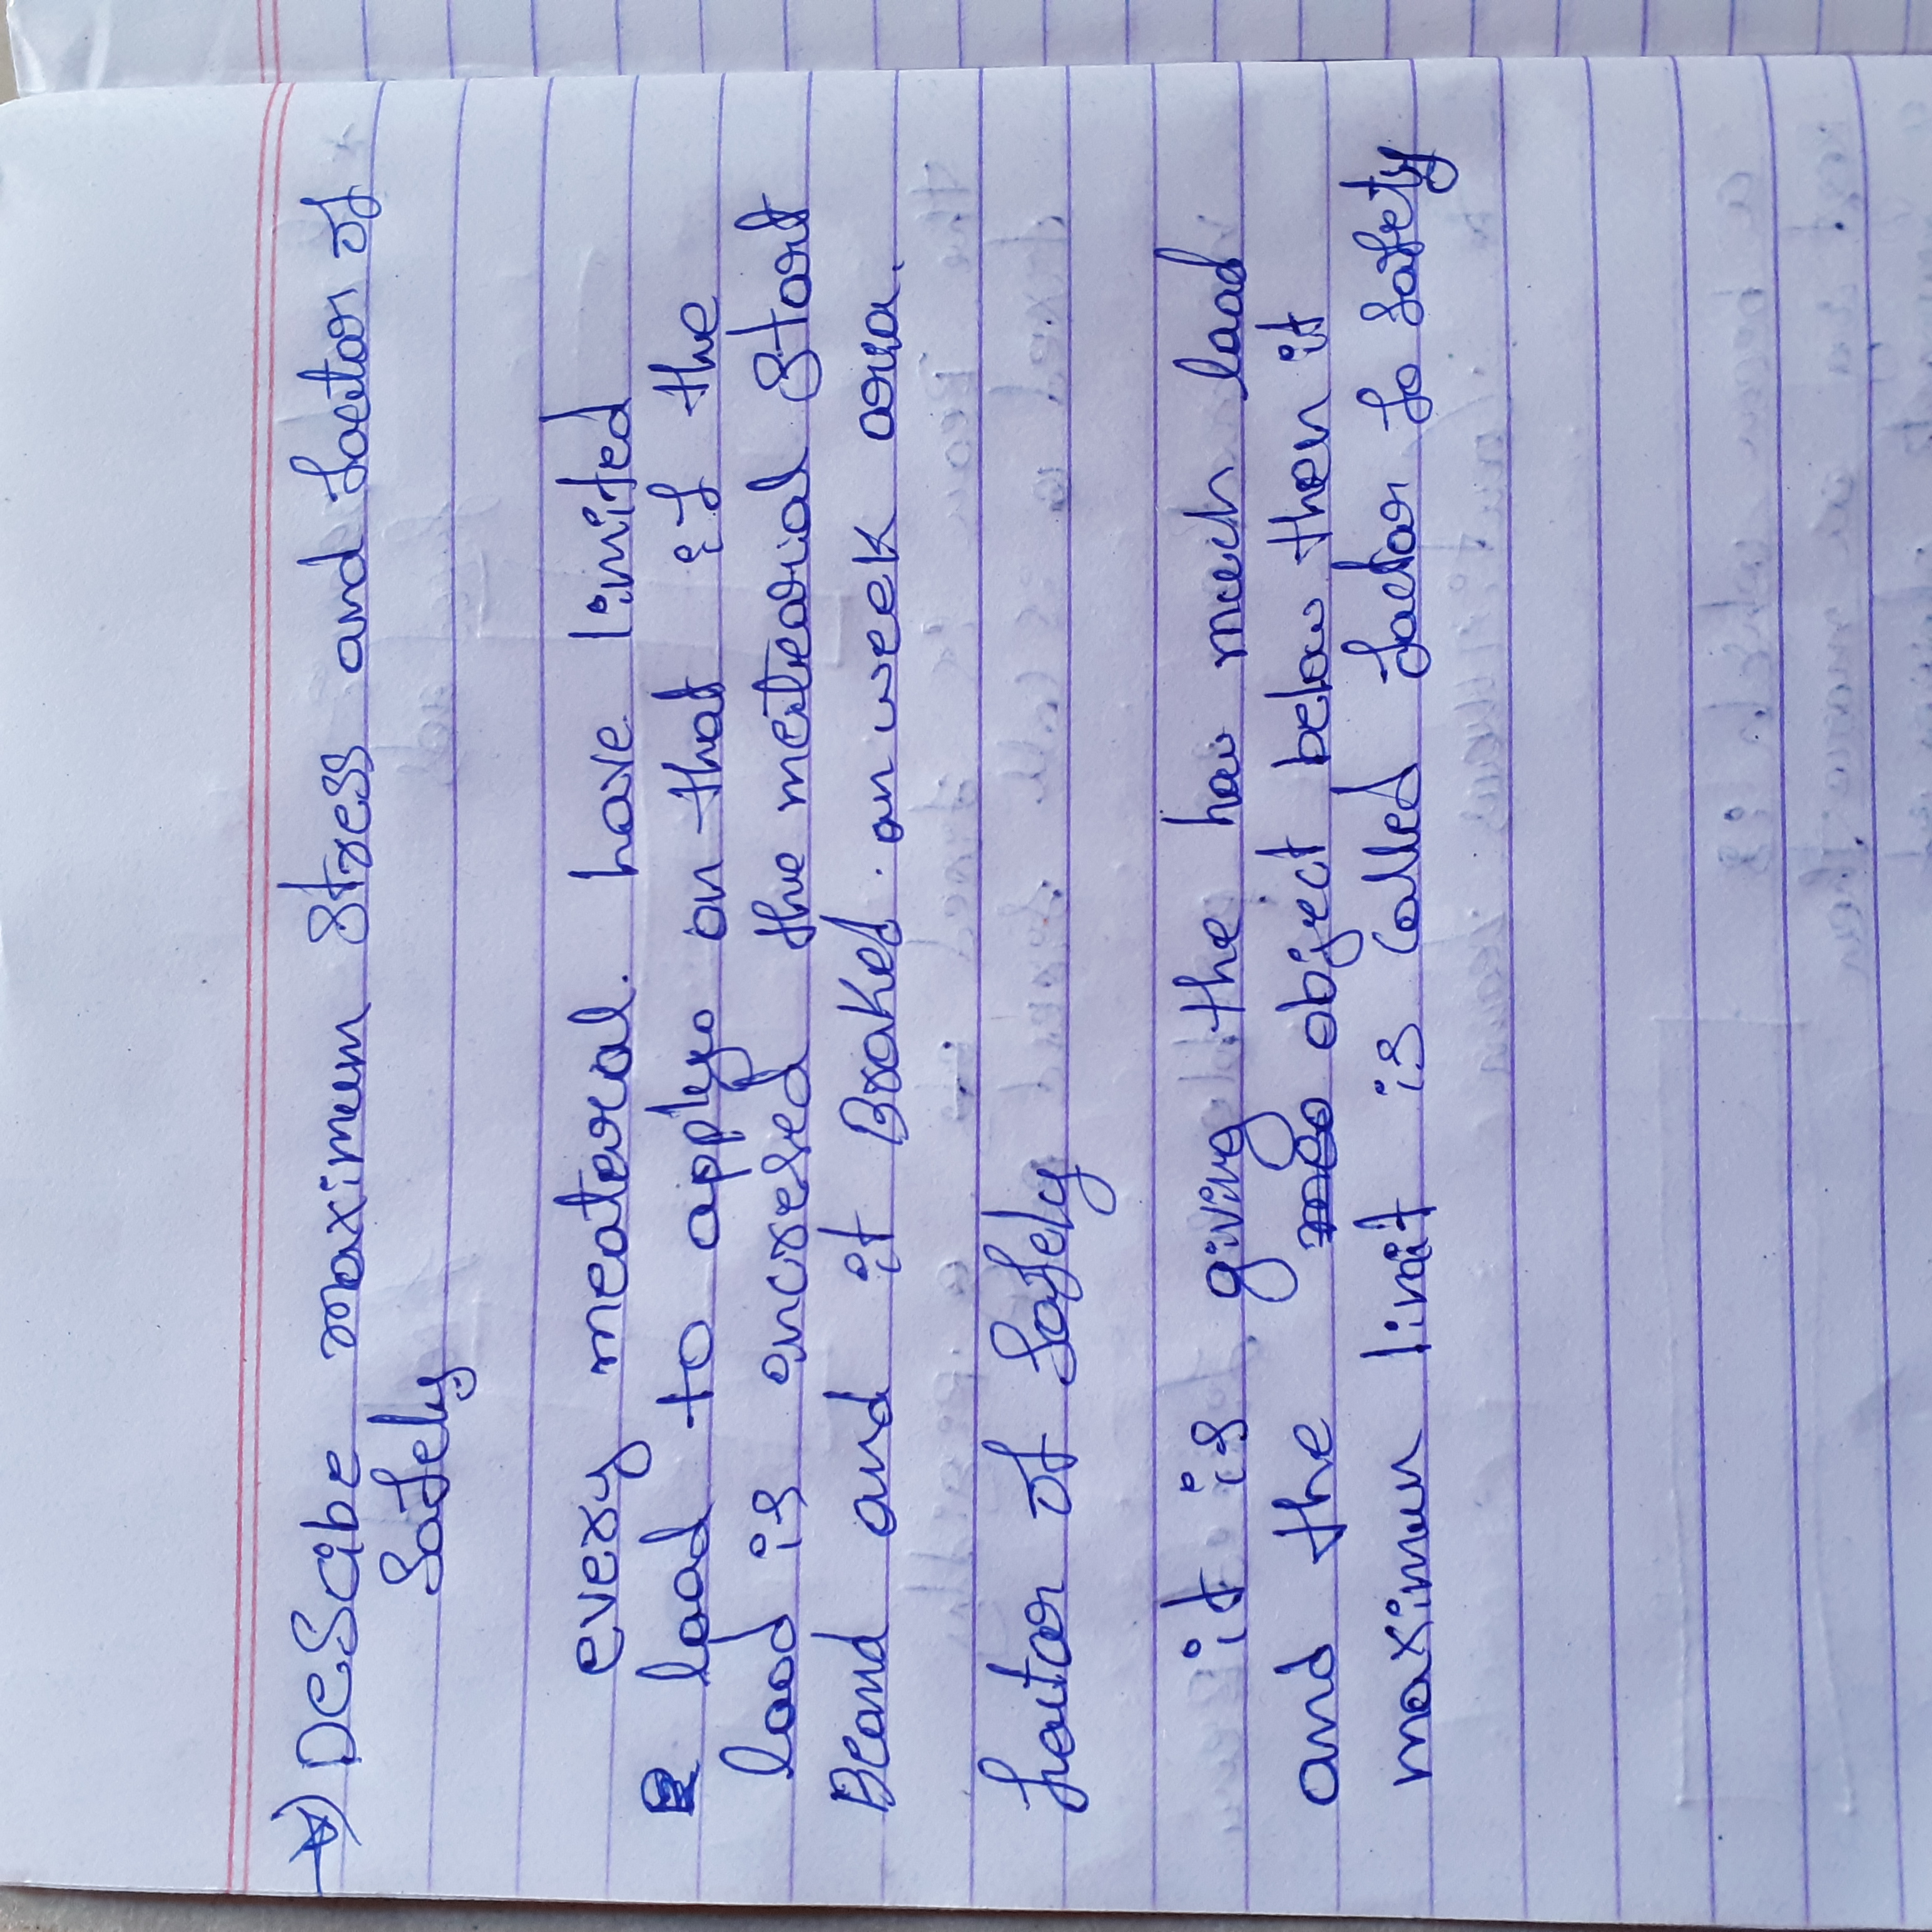 Describe maximum stress and factor of
Safely
every meateral. have limited
load to apply on that if the
load is encresed the matearial start
Beand and it Braked. on week area.
factor of Safely
it is giving the how much load
and the object below then it
maximun limit is called factor fo Safety